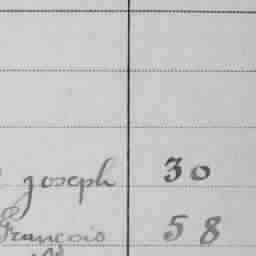 joseph 30
François 58